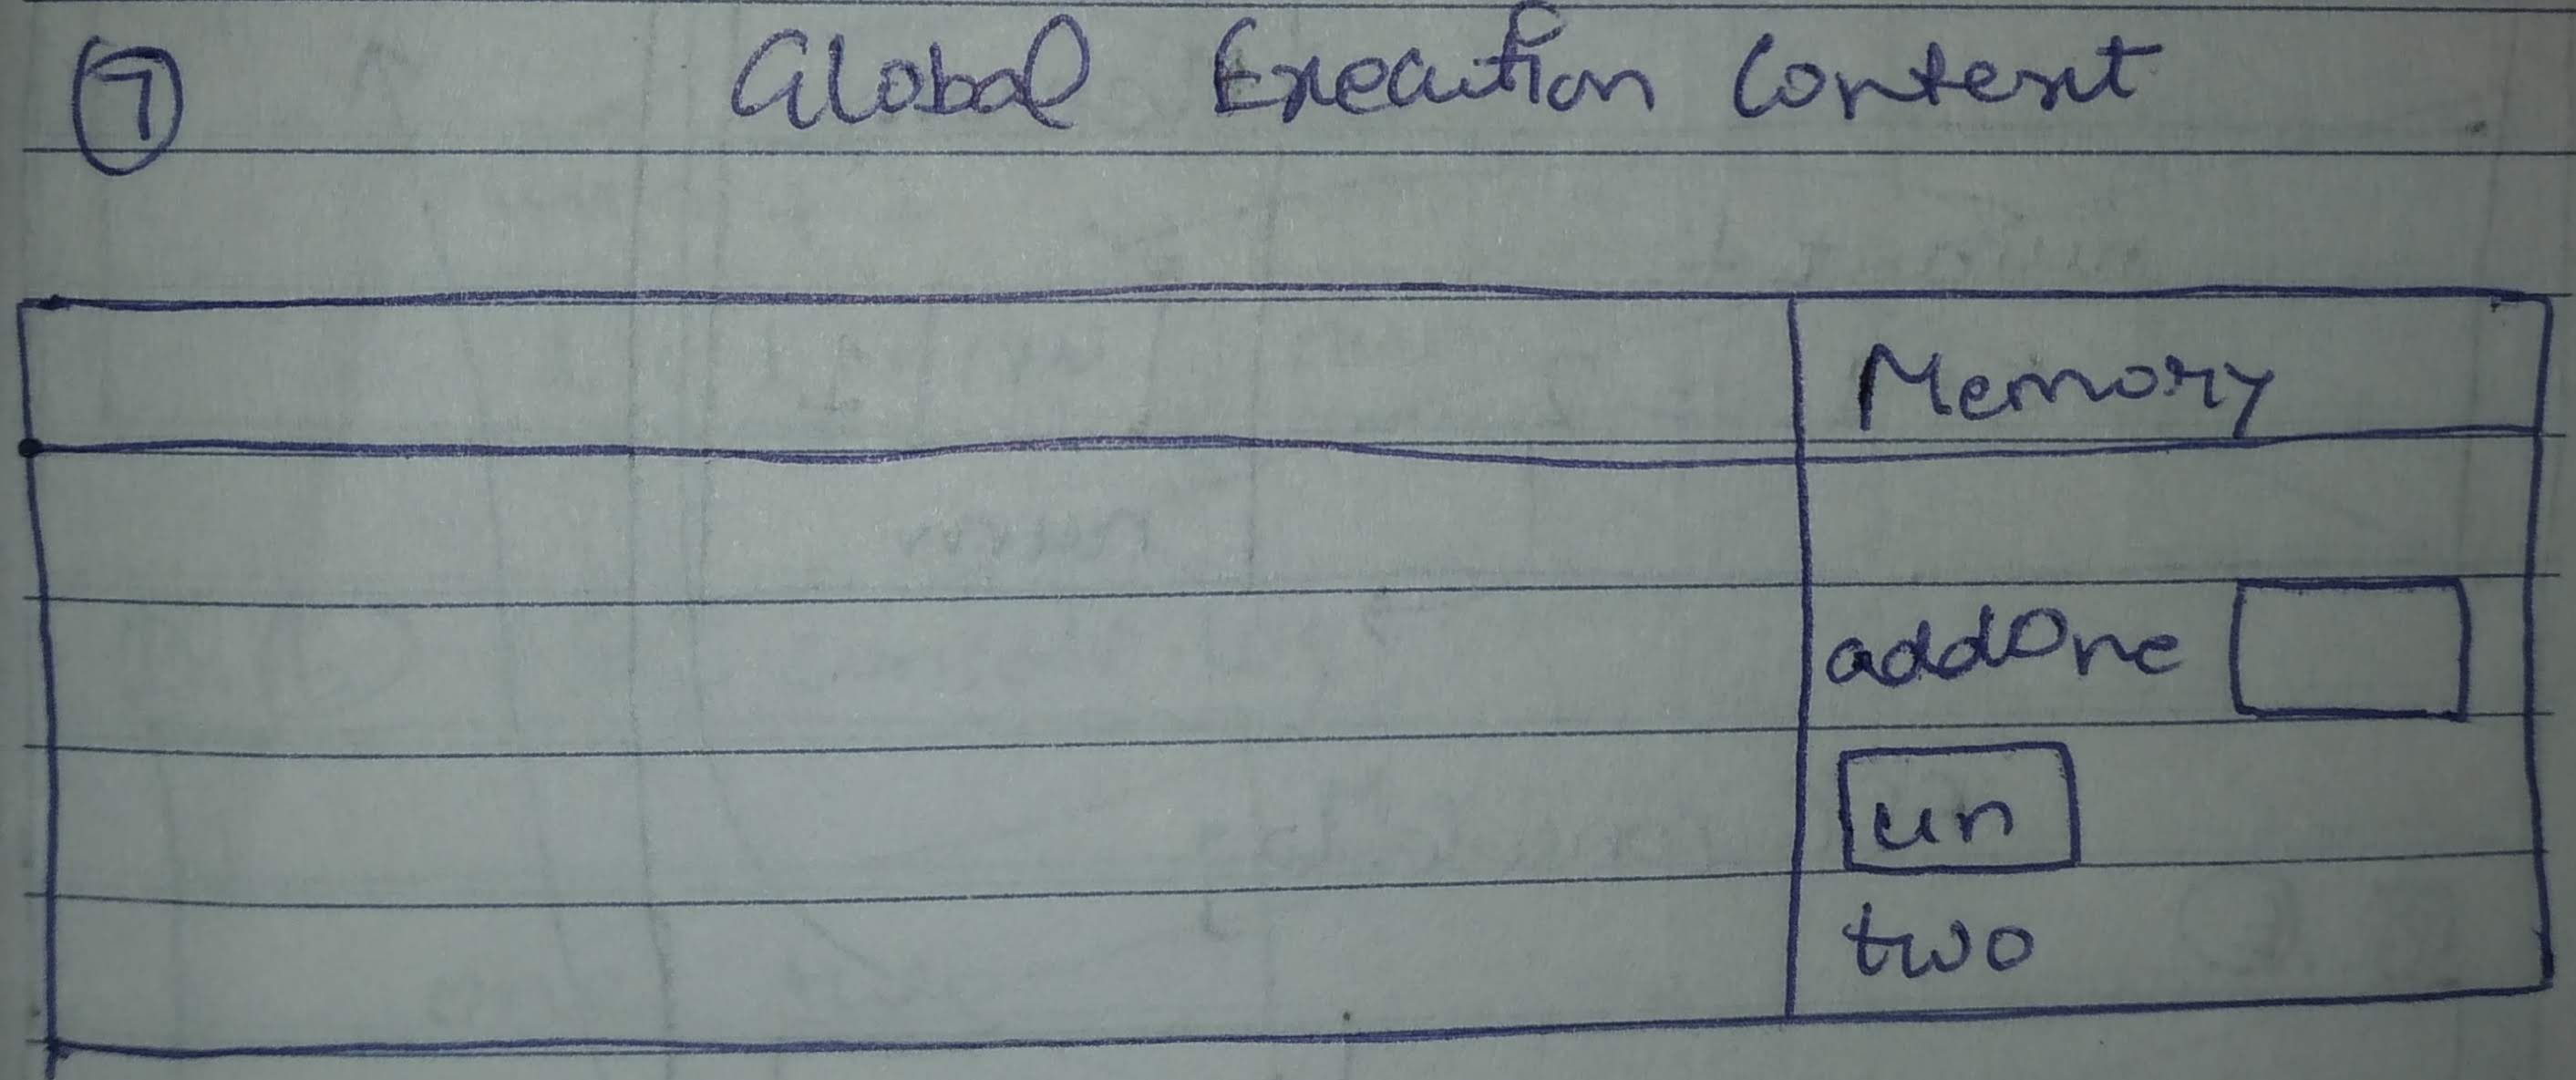 7 Global Execution Context
Memory
addOne
un
two